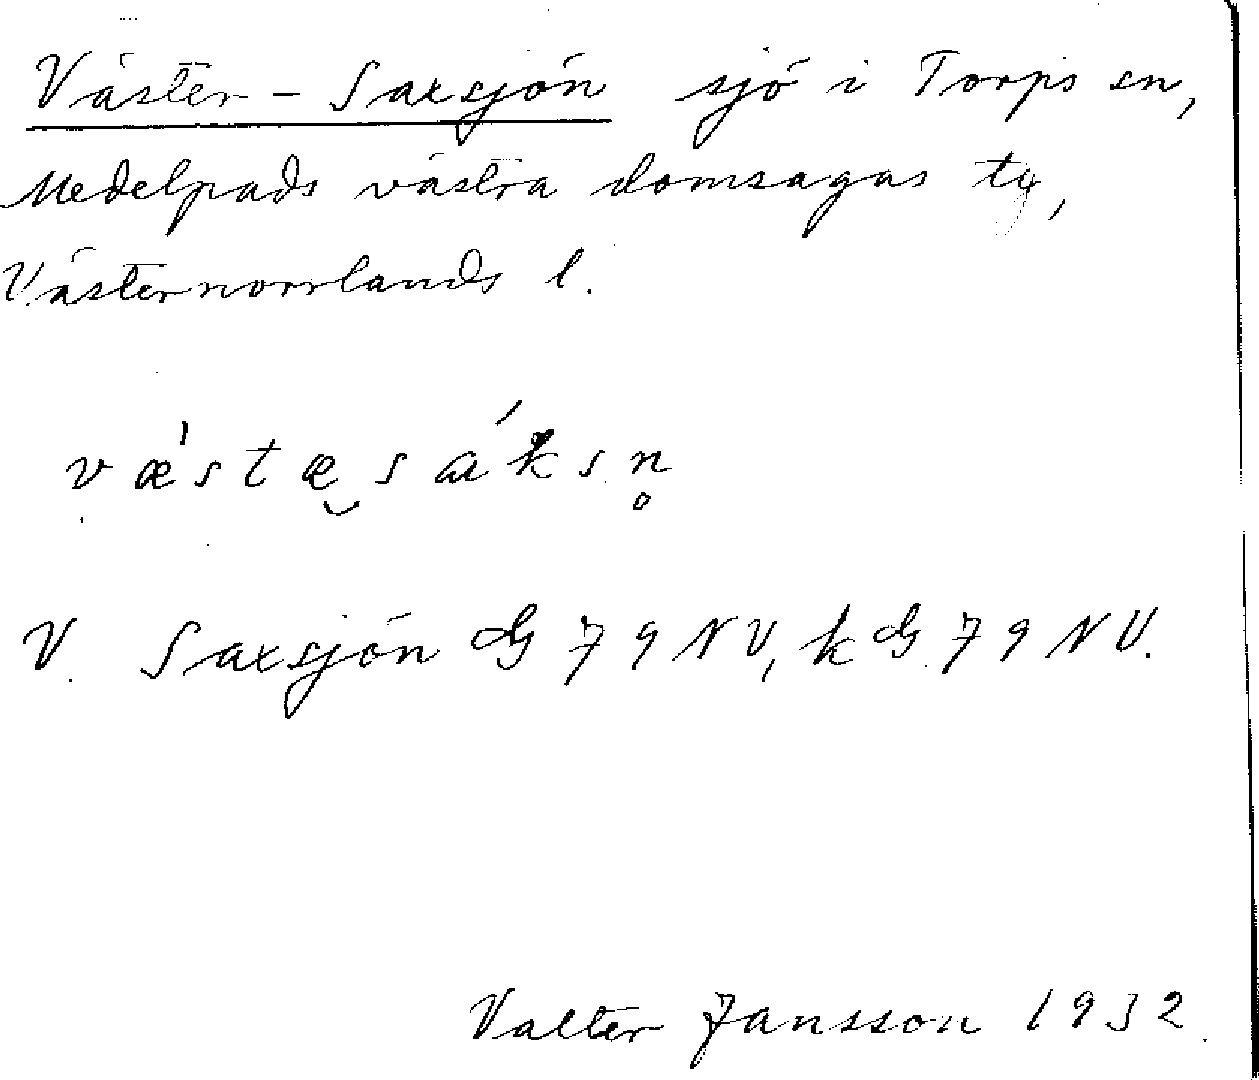 Väster-Saxsjön sjö i Torps sn,
Medelpads västra domsagas tg,
Västernorrlands l.
væ̀stæ̮sáksn̥
V. Saxsjön G 79 NV, k G 79 NV.
Valter Jansson 1932.